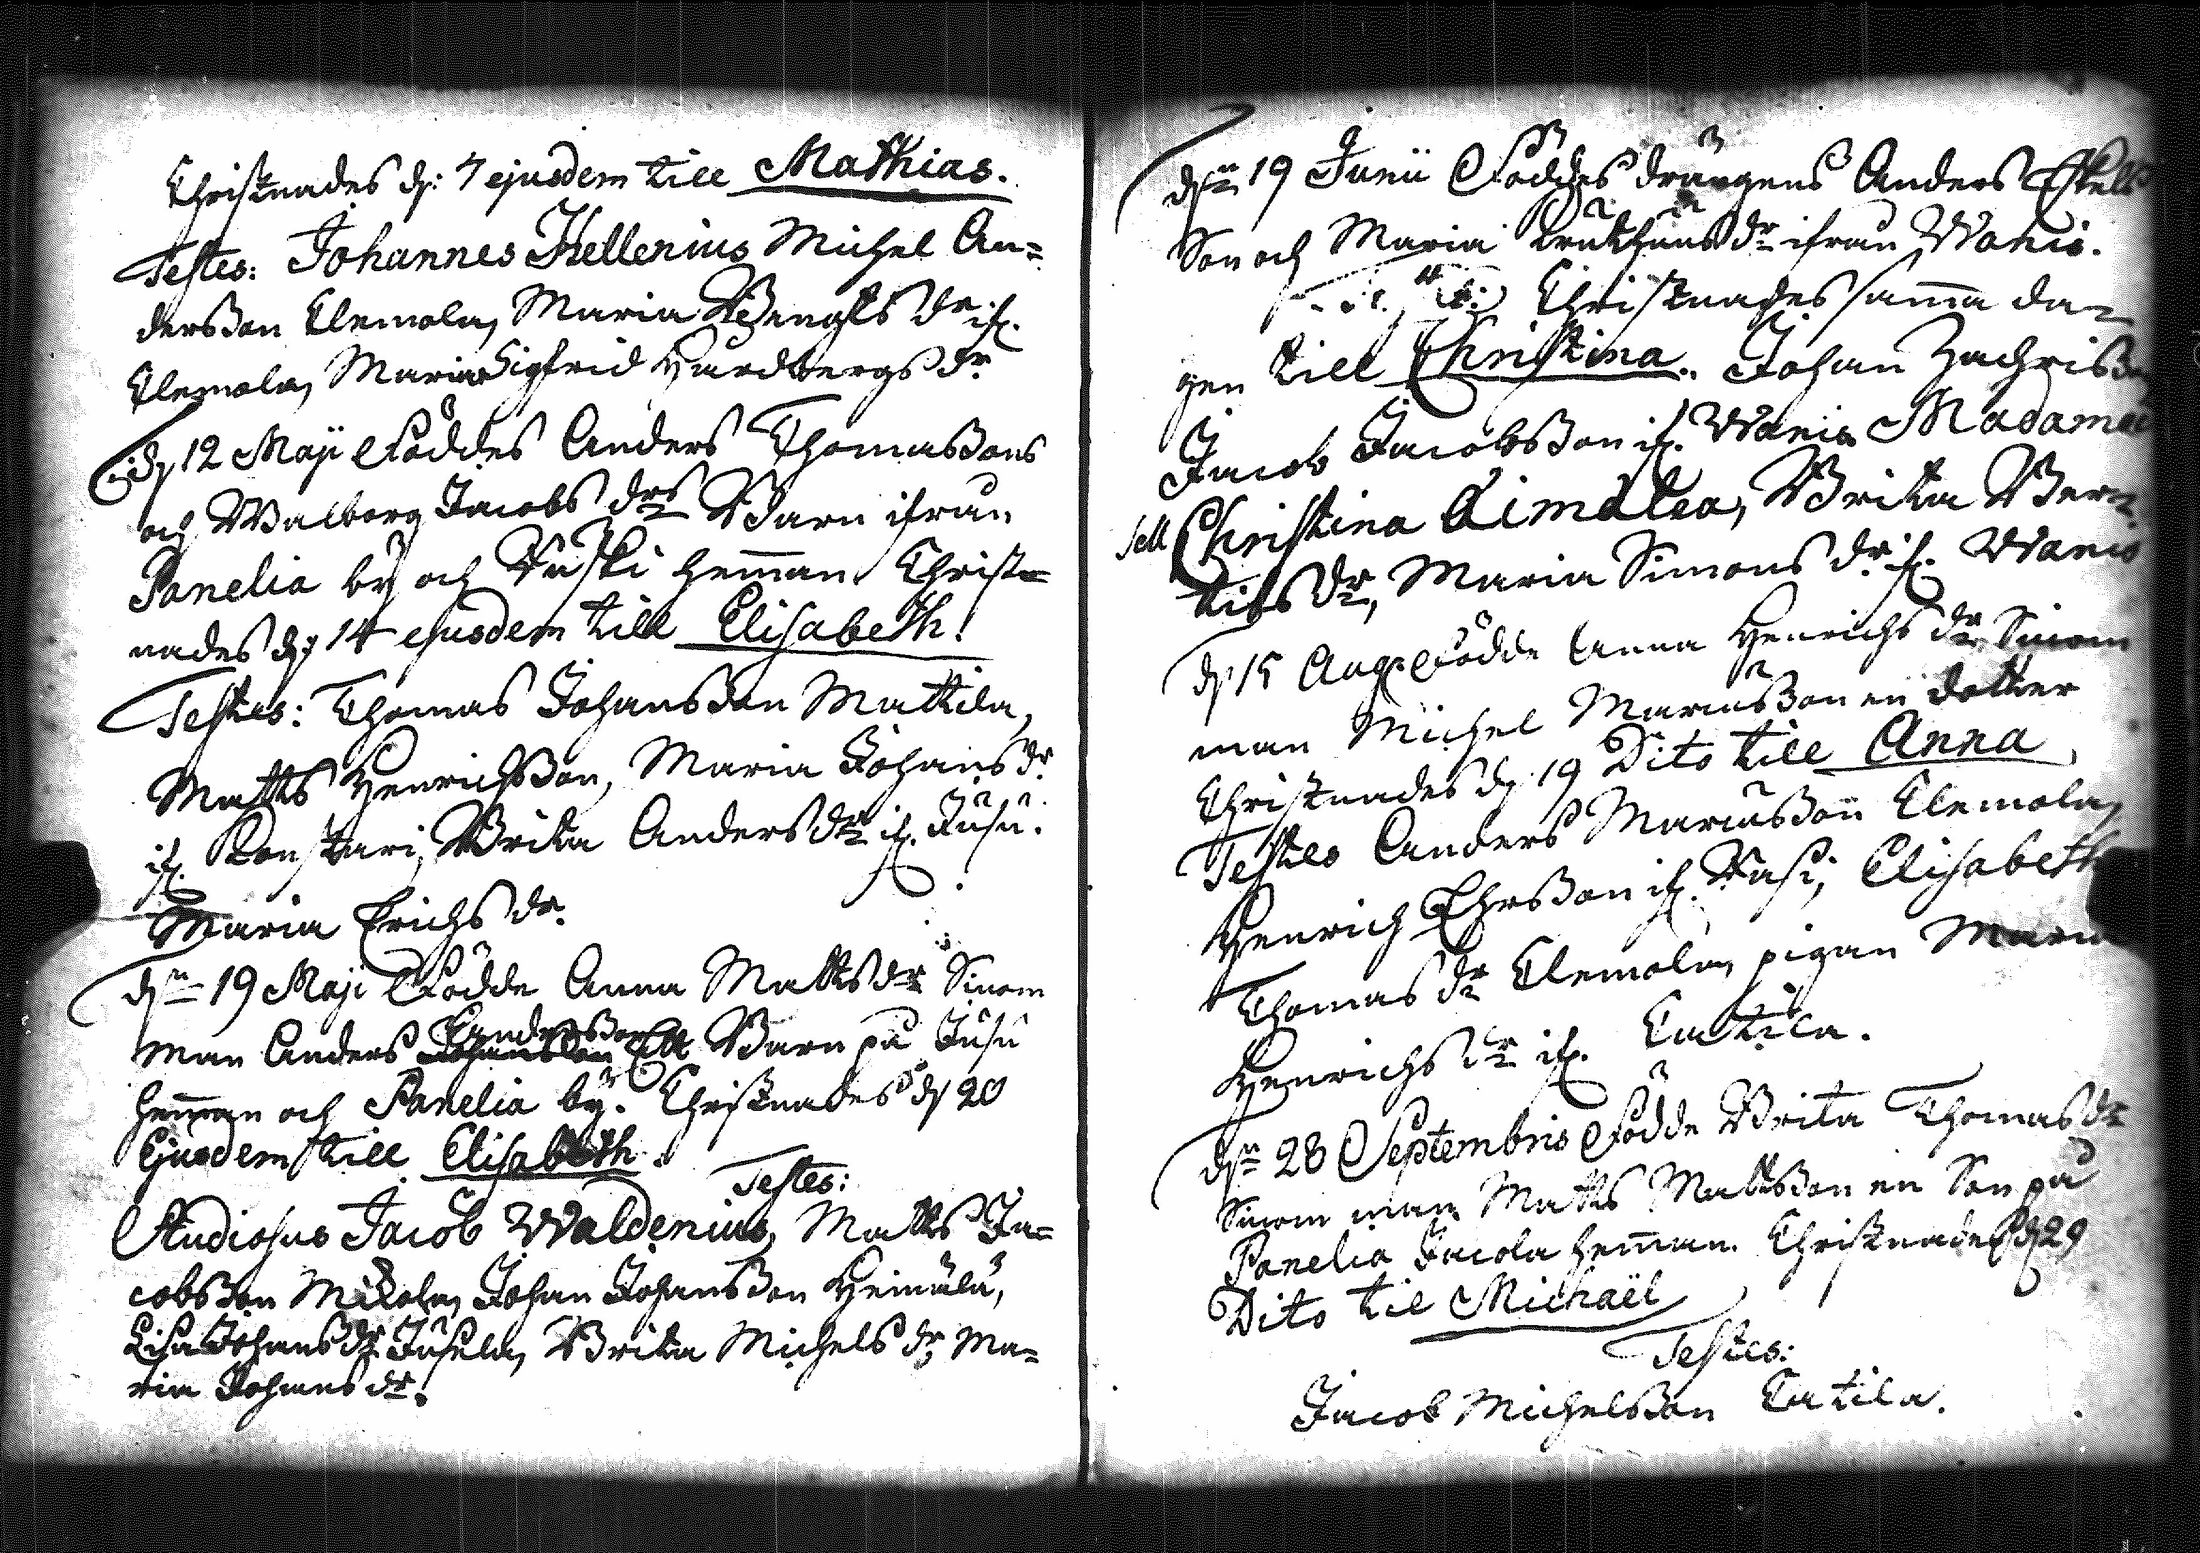 Christnades d: 7 ejusdem till Mathias.
Testes: Johannes Hellenius Michel An=
dersson Clemola, Maria Bengts dr if.
Clemola, Maria Sigfrid Hurdbergs dr
d 12 Maji Föddes Anders Thomassons
och Walborg Jacobs drs Barn ifrån
Panelia by och Tuiski hemman Christ=
nades d 14 ejusdem till Elisabeth.
Testes: Thomas Johansson Mattila,
Matts Henrichsson, Maria Johans dr
if. Konstari, Brita Anders dr if. Juusu.
Maria Erichs dr.
dn 19 Maji Födde Anna Matts dr Sinom
Andersson
man Anders Ett Barn på Jusu
hemman och Panelia by. Christnades d 20
Ejusdem till Elisabeth.
Testes:
Studiosus Jacob Waldenius, Matts Ja=
cobsson Mikola, Johan Johansson Heinälä,
Lisa Johans dr Jusela, Brita Michels dr, Ma=
ria Johans dr.
dn 19 Junii Föddes drängens Anders Eskels
Son och Maria dr ifrån Wanis.
Christnades samma da=
gen till Christina. Johan Zachrisson
Jacob Jacobsson if. Wanis Madame
Christina Aimälea, Brita Ber=
tils dr, Maria Simons dr if. Wanis
d 15 Aug: Födde Anna Henrichs dr Sinom
man Michel Mariusson en dotter
Christnades d 19 Dito till Anna
Testes Anders Mariusson Clemola,
Henrich Ehrsson if. Elisabeth
Thomas dr Clemola, pigan Maria
Henrichs dr if. Catila.
dn 28 Septembris Födde Brita Thomas dr
Sinom man Matts Mattsson en Son på
Panelia Jacola hemman. Christnades d 29
Dito til Michaël
Testes:
Jacob Michelsson Catila.